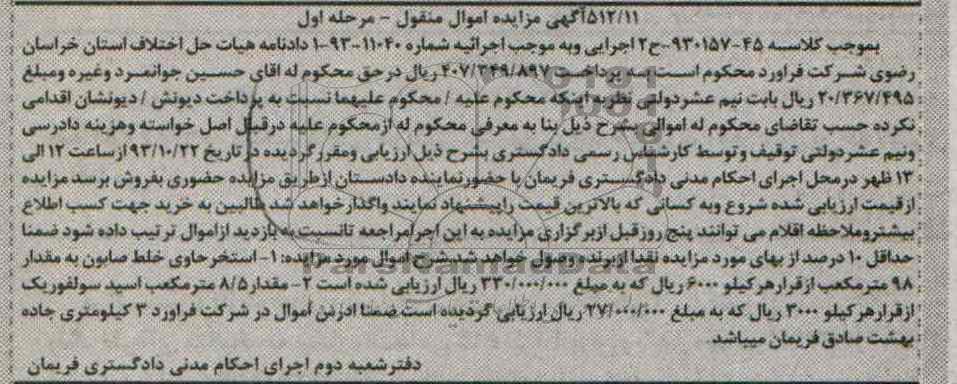 ۵۱۲/۱۱آگهی مزایده اموال منقول - مرحله اول
بموجب کلاسه ۴۵-۹۳۰۱۵۷-ح۲ اجرایی وبه موجب اجرائیه شماره ۱۱۰۴۰-۹۳-۱ دادنامه هیات حل اختلاف استان خراسان
رضوی شرکت فراورد محکوم است به پرداخت ۴۰۷/۳۴۹/۸۹۷ ریال درحق محکوم له اقای حسین جوانمرد وغیره ومبلغ
۲۰/۳۶۷/۴۹۵ ریال بابت نیم عشردولتی نظربه اینکه محکوم علیه / محکوم علیهما نسبت به پرداخت دیونش / دیونشان اقدامی
نکرده حسب تقاضای محکوم له اموالی بشرح ذیل بنا به معرفی محکوم له ازمحکوم علیه درقبال اصل خواسته وهزینه دادرسی
ونیم عشردولتی توقیف وتوسط کارشناس رسمی دادگستری بشرح ذیل ارزیابی ومقررگردیده درتاریخ ۹۳/۱۰/۲۲ ازساعت ۱۲ الی
۱۳ ظهر درمحل اجرای احکام مدنی دادگستری فریمان با حضورنماینده دادستان ازطریق مزایده حضوری بفروش برسد مزایده
ازقیمت ارزیابی شده شروع وبه کسانی که بالاترین قیمت راپیشنهاد نمایند واگذارخواهد شد طالبین به خرید جهت کسب اطلاع
بیشتروملاحظه اقلام می توانند پنج روزقبل ازبرگزاری مزایده به این اجرامراجعه تانسبت به بازدید ازاموال ترتیب داده شود ضمنا
حداقل ۱۰ درصد از بهای مورد مزایده نقدا ازبرنده وصول خواهد شد.شرح اموال مورد مزایده: ۱- استخر حاوی خلط صابون به مقدار
۹۸ مترمکعب ازقرارهرکیلو ۶۰۰۰ ریال که به مبلغ ۳۳۰/۰۰۰/۰۰۰ ریال ارزیابی شده است ۲- مقدار ۸/۵ مترمکعب اسید سولفوریک
ازقرارهرکیلو ۳۰۰۰ ریال که به مبلغ ۲۷/۰۰۰/۰۰۰ ریال ارزیابی گردیده است.ضمنا ادرس اموال در شرکت فراورد ۳ کیلومتری جاده
بهشت صادق فریمان میباشد.
دفترشعبه دوم اجرای احکام مدنی دادگستری فریمان
ParsNamadData